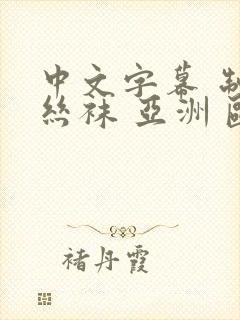 中文字幕 制
丝袜 亚洲
褚丹霞